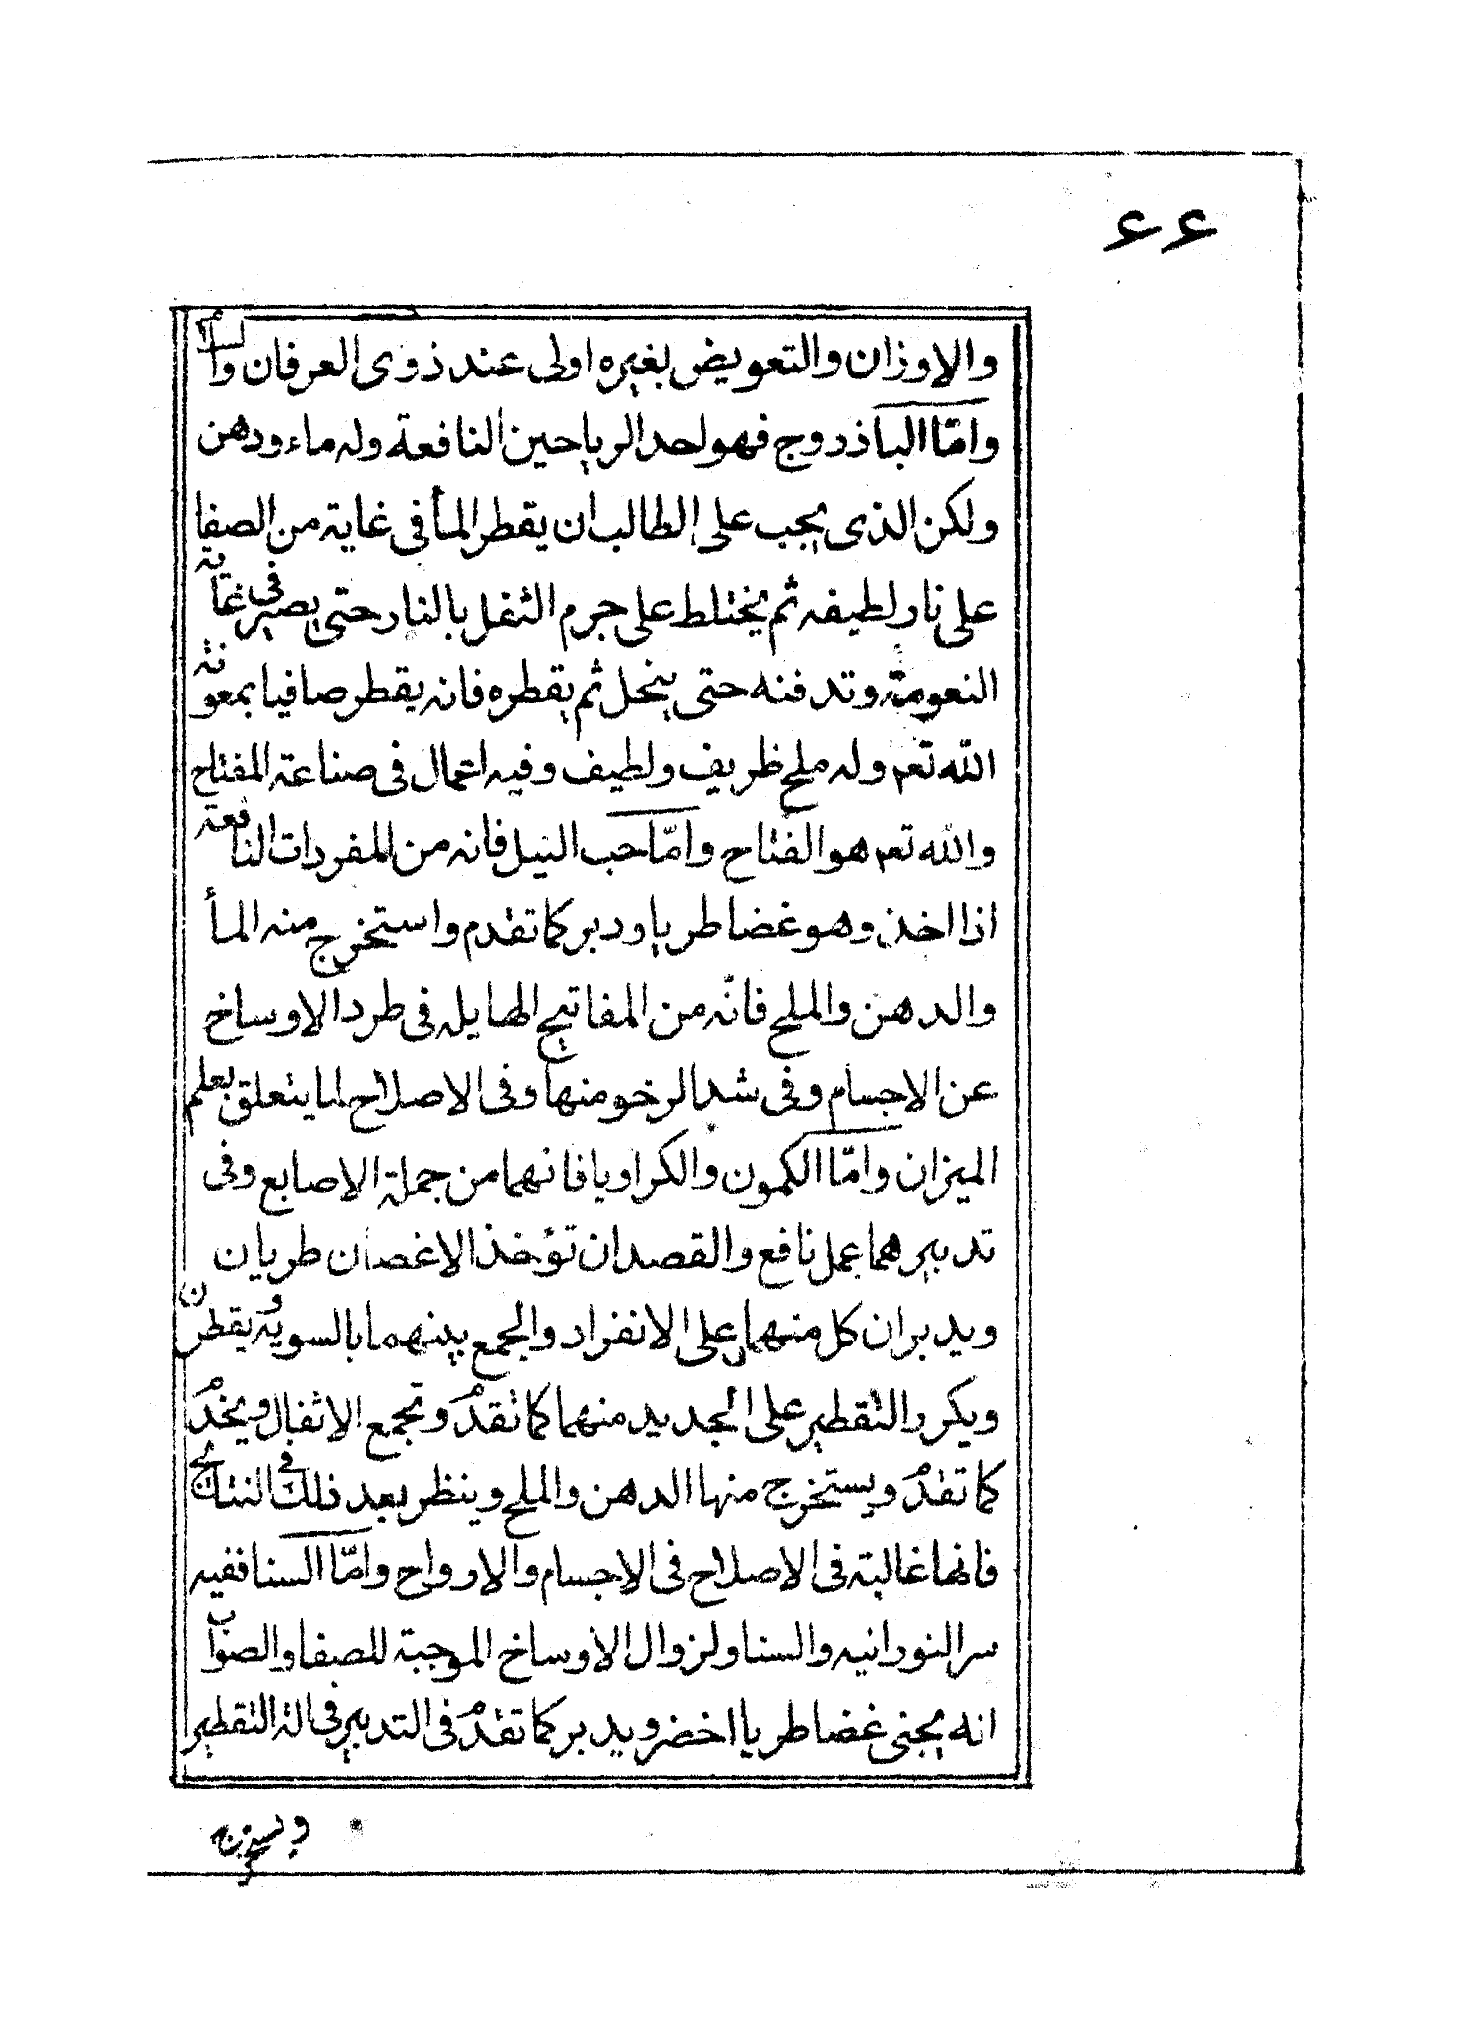 ٤٤
والاوزان والتعويض بغيره اولى عند ذوى العرفان والسلام
وامّا الباذروج فهو احد الرياحين النافعة وله ماء ودهن
ولكن الذى يجب على الطالب ان يقطر المأ فى غاية من الصفا
على نار لطيفه ثم يختلط على جرم الثفل بالنار حتى يصير فى غاية
النعومة وتدفنه حتى ينحل ثم يقطره فانه يقطر صافيا بمعونة
الله تعم وله ملح ظريف ولطيف وفيه اعمال فى صناعة المفتاح
والله تعم هو الفتاح وامّا حب النيل فانه من المفردات النافعة
اذا اخذ وهو غضا طريا ودبر كما تقدم واستخرج منه المأ
والدهن والملح فانّه من المفاتيح الهايله فى طرد الاوساخ
عن الاجسام وفى شد الرخو منها وفى الاصلاح لما يتعلق بعلم
الميزان وامّا الكمون والكراويا فانهما من جملة الاصابع وفى
تدبيرهما عمل نافع والقصد ان تؤخذ الاغصان طريان
ويدبران كل منهما على الانفراد والجمع بينهما بالسوية ويقطرن
ويكرر التقطير على الجديد منهما كما تقدم وتجمع الاثفال ويخدم
كما تقدم ويستخرج منها الدهن والملح وينظر بعد ذلك فى النتائج
فانها غالبة فى الاصلاح فى الاجسام والارواح وامّا السنا ففيه
سر النورانيه والسنا ولزوال الاوساخ الموجبة للصفا والصواب
انه يجنى غضا طريا اخضر ويدبر كما تقدم فى التدبير فى الة التقطير
ويستخرج